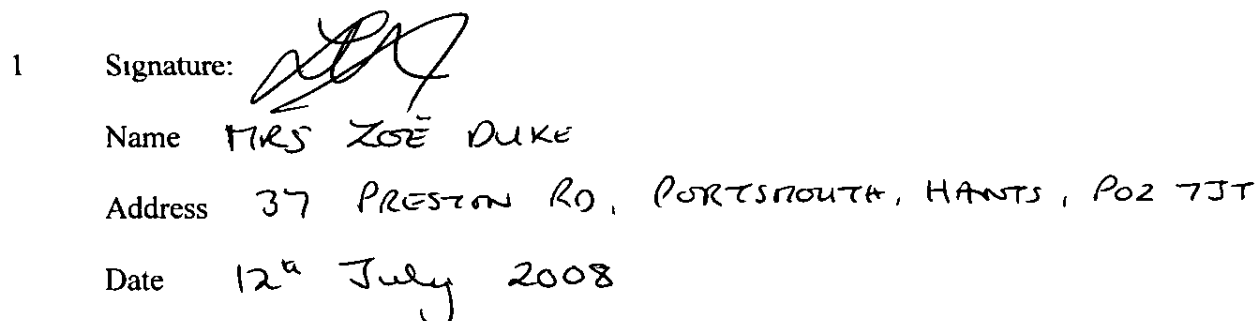 1 Signature:
Name MRS ZOË DUKE
Address 37 PRESTON RD, PORTSMOUTH, HANTS, PO2 7JT
Date 12th July 2008